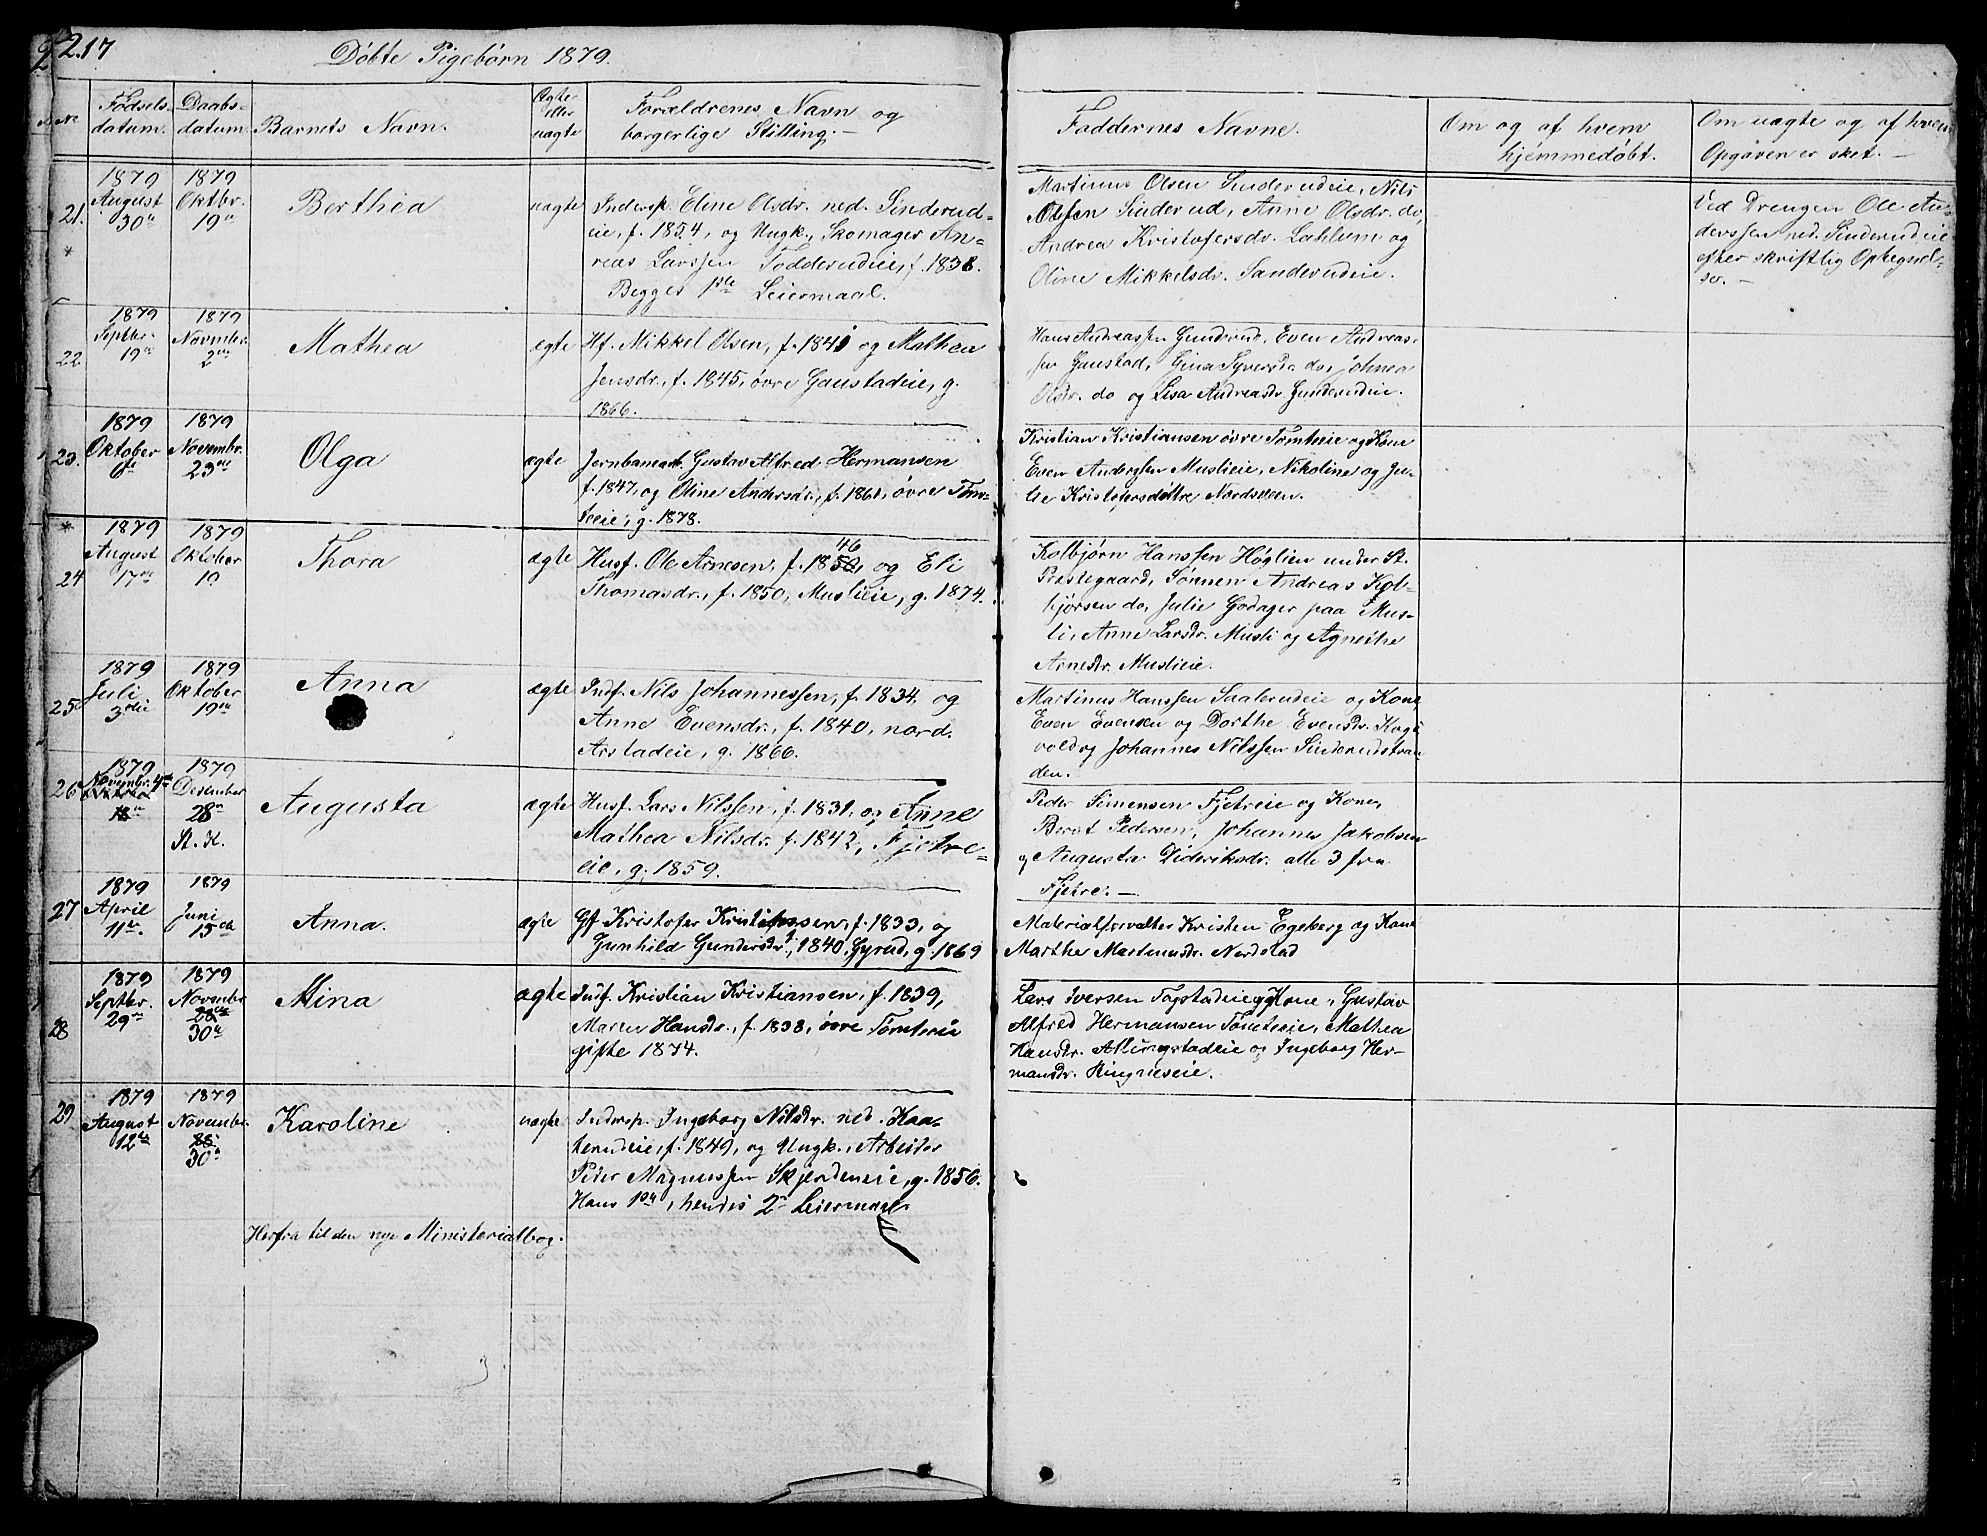 217
Døbte Pigebørn 1879.
No
Fødsels-
datum.
Daabs-
datum.
Barnets Navn.
Ægte
eller
uægte
Forældrenes Navn og
borgerlige Stilling.
Faddernes Navne.
Om og af hvem
hjemmedøbt.
Om uægte og af hvem
Opgaven er sket.
21.
*
1879
August
30
1879
Oktbr.
19
Berthea
uægte
Indersp. Eline Olsdr. ned. Sinderud-
eie, f. 1854, og Ungk., Skomager An-
reas Larssen Fodderudeie, f. 1838.
Begges 1ste Leiermaal.
Martinus Olsen Sinderudeie, Nils
Olsen Sinderud, Anne Olsdr. do,
Andrea Kristofersdr. Lahlum og
Oline Mikkelsdr. Sanderudeie.
Ved Drengen Ole An-
derssen ned. Sinderudeie
efter skriftlig Opbegnel-
se.
22
1879
Septbr.
19
1879
Novmber
2
Mathea
ægte
Hf. Mikkel Olsen, f. 1841 og Mathea
Jensdr., f. 1845, øvre Gaustadeie, g.
1866.
Hans Andreassen Gunderud, Even Andreas-
sen Gaustad, Gina Syversdr. do, Johnea
Olsdr. do og Lisa Andreasdr. Gunderudeie.
23.
1879
Oktober
6te
1879
Novembr.
23
Olga
ægte
Jernbanearb. Gustav Alfred Hermansen
f. 1847, og Oline Andersdr., f. 1861, øvre Tømt-
eeie, g. 1878.
Kristian Kristiansen øvre Tømteeie og Kone
Even Anderssen Muslieie, Nikoline og Ju-
lie Kristofersdøttre Nordsveen.
*
24
1879
August
17
1879
Oktober
19
Thora
ægte
46
Husf. Ole Arnesen, f. 1850, og Eli
Thomasdr., f. 1850, Muslieie, g. 1874.
Kolbjørn Hanssen Høglien under St.
Præstegaard, Sønnen Andreas Kol-
bjørsen do, Julie Godager paa Mus-
li, Anne Larsdr. Musli og Agnethe
Arnesdr. Muslieie.
25
1879
Juli
3die
1879
Oktober
19
Anna
ægte
Indf. Nils Johannessen, f. 1834 og
Anne Evensdr., f. 1840, nord.
Arstadeie, g. 1866.
Martinus Hanssen Saalerudeie og Kone,
Even Evensen og Dorthe Evensdr.
vold og Johannes Nilssen Sinderudstran-
den.
26
1879
Novembr. 4
18
1879
Desember
28
St. K.
Augusta
ægte
Husf. Lars Nilssen, f. 1831, og Anne
Mathea Nilsdr. f. 1842, Fjetre-
eie, g. 1859.
Peder Simensen Fjetreie og Kone,
Bernt Pedersen, Johannes Jakobsen
og Augusta Dideriksdr. alle 3 fra
Fjetre.
27
1879
April
11
1879
Juni
15
Anna.
ægte
Gf. Kristofer Kristiansen, f. 1833, og
Gunhild Gundersdr., f. 1840, Gyrud, g. 1869
Materialforvalter Kristen Egeberg og Kone
Marthe Martinusdr. Nordstad
28
1879
Septbr.
29
1879
Novembr
28
30
Mina
ægte
Indf. Kristian Kristiansen, f. 1839,
Maren Hansdr., f. 1838, øvre Tømteeie
gifte 1874.
Lars Iversen Fagstadeie og Kone, Gustav
Alfred Hermansen Tømteeie, Mathea
Hansdr. Allingstadeie og Ingeborg Her-
mansdr. Ringneseie.
29
1879
August
12
1879
Novembr.
28
30
Karoline
uægte
Indersp. Ingeborg Nilsdr. ned. Kaa-
terudeie, f. 1849, og Ungk., Arbeider
Peder Magnussen Skjerdeneie, g. 1856.
Hans 1ste, hendes 2 Leiermaal.
Herfra til den nye Ministerialbog.